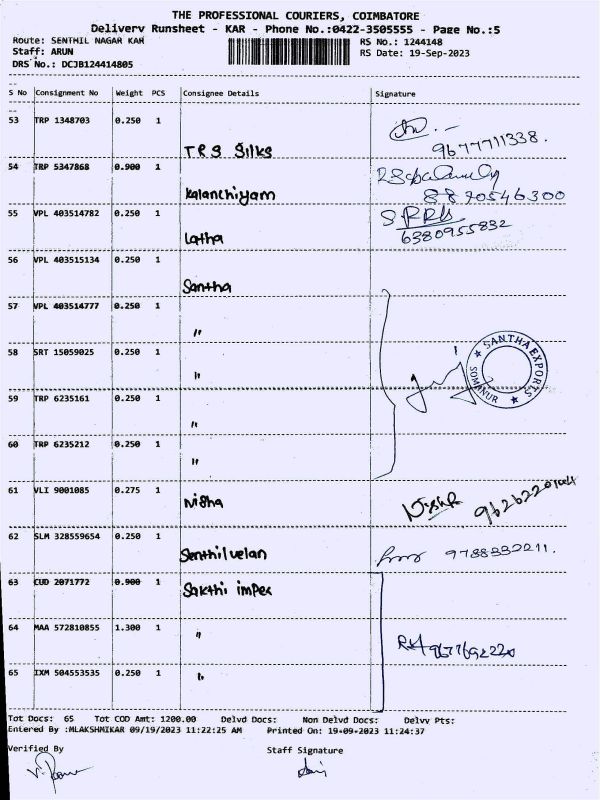 THE PROFESSIONAL COURIERS, COIMBATORE
Delivery Runsheet - KAR - Phone No.:0422-3505555 - Page No.:5
Route: SENTHIL NAGAR KAR RS No.: 1244148
Staff: ARUN RS Date: 19-Sep-2023
DRS No.: DCJB124414805
S No Consignment No Weight PCS Consignee Details Signature
53 TRP 1348703 0.250 1
TRS Silks 9677711338.
54 TRP 5347868 0.900 1
Kalanchiyam 8870546300
55 VPL 403514782 0.250 1
Latha 6380955832
56 VPL 403515134 0.250 1
Santha
57 VPL 403514777 0.250 1
"
58 SRT 15059025 0.250 1
" SANTHA EXPORTS SOMANUR
59 TRP 6235161 0.250 1
"
60 TRP 6235212 0.250 1
"
61 VLI 9001085 0.275 1
Nisha
62 SLM 328559654 0.250 1
Senthilvelan 9788332211.
63 CUD 2071772 0.900 1
Sakthi impex
64 MAA 572810855 1.300 1
"
65 IXM 504553535 0.250 1
"
Tot Docs: 65 Tot COD Amt: 1200.00 Delvd Docs: Non Delvd Docs: Delvy Pts:
Entered By :MLAKSHMIKAR 09/19/2023 11:22:25 AM Printed On: 19-09-2023 11:24:37
Verified By Staff Signature